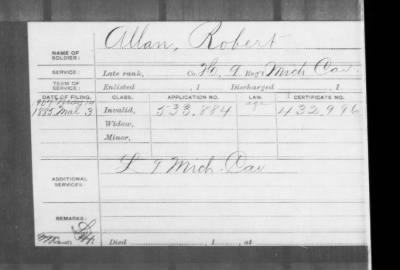 Allan, Robert
NAME OF SOLDIER:
SERVICE: Late rank, Co. H, 9 Reg't Mich Cav.
TERM OF SERVICE: Enlisted , 1 Discharged , 1
DATE OF FILING. CLASS. APPLICATION NO. LAW. CERTIFICATE NO.
1885 Mar. 3 Invalid, 533.884 432.996
Widow,
Minor,
ADDITIONAL SERVICES: L 9 Mich Cav
REMARKS:
Died , 1 , at